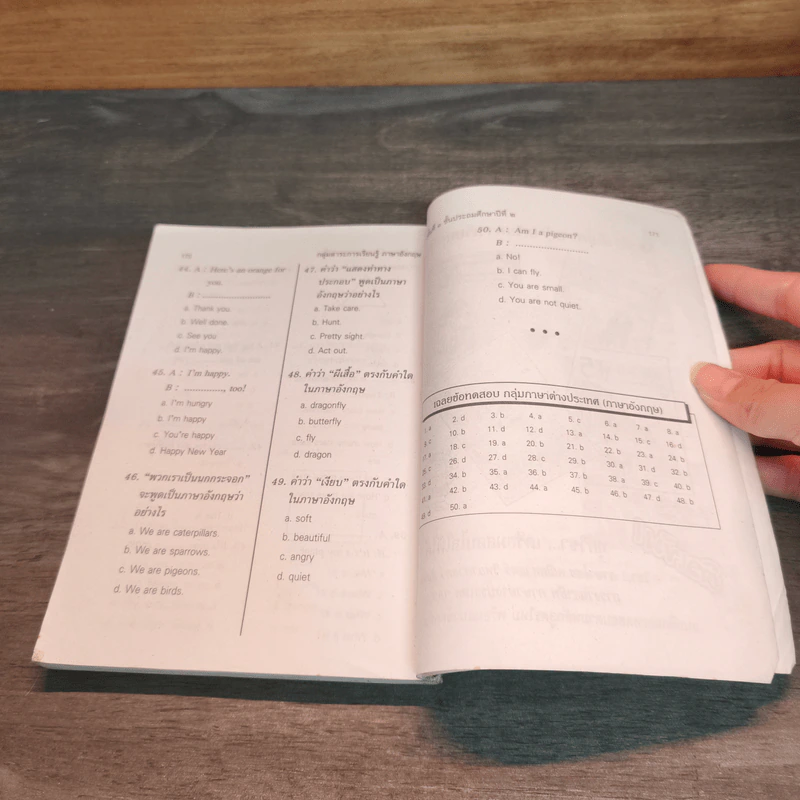 กลุ่มสาระการเรียนรู้ ภาษาอังกฤษ
44. A : Here's an orange for
you.
B : ........................
a. Thank you.
b. Well done.
c. See you
d. I'm happy.
45. A : I'm happy.
B : ............., too!
a. I'm hungry
b. I'm happy
c. You're happy
d. Happy New Year
46. "พวกเราเป็นนกกระจอก"
จะพูดเป็นภาษาอังกฤษว่า
อย่างไร
a. We are caterpillars.
b. We are sparrows.
c. We are pigeons.
d. We are birds.
47. คำว่า "แสดงท่าทาง
ประกอบ" พูดเป็นภาษา
อังกฤษว่าอย่างไร
a. Take care.
b. Hunt.
c. Pretty sight.
d. Act out.
48. คำว่า "ผีเสื้อ" ตรงกับคำใด
ในภาษาอังกฤษ
a. dragonfly
b. butterfly
c. fly
d. dragon
49. คำว่า "เงียบ" ตรงกับคำใด
ในภาษาอังกฤษ
a. soft
b. beautiful
c. angry
d. quiet
ชั้นประถมศึกษาปีที่ ๒
50. A : Am I a pigeon?
B : ........................
a. No!
b. I can fly.
c. You are small.
d. You are not quiet.
• • •
เฉลยข้อทดสอบ กลุ่มภาษาต่างประเทศ (ภาษาอังกฤษ)
2. d 3. b 4. a 5. c 6. a 7. a 8. a
10. b 11. d 12. d 13. a 14. b 15. c 16. d
18. c 19. a 20. b 21. b 22. b 23. a 24. b
26. d 27. d 28. c 29. b 30. a 31. d 32. b
34. b 35. a 36. b 37. b 38. a 39. c 40. b
42. b 43. d 44. a 45. b 46. b 47. d 48. b
50. a